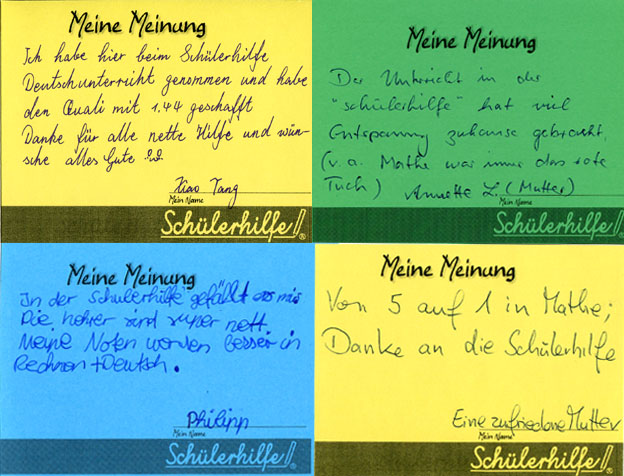 Meine Meinung
Ich habe hier beim Schülerhilfe
Deutschunterricht genommen und habe
den Quali mit 1.44 geschafft
Danke für alle nette Hilfe und wün-
sche alles Gute !!
Xiao Tang
Mein Name
Schülerhilfe!®
Meine Meinung
Der Unterricht in der
"schülerhilfe" hat viel
Entspannung zuhause gebracht.
(v.a. Mathe war immer das rote
Tuch) Annette L. (Mutter)
Mein Name
Schülerhilfe!®
Meine Meinung
In der Schülerhilfe gefällt es mir
Die Lehrer sind super nett.
Meine Noten worden besser in
Rechnen + Deutsch.
Philipp
Mein Name
Schülerhilfe!®
Meine Meinung
Von 5 auf 1 in Mathe;
Danke an die Schülerhilfe
Eine zufriedene Mutter
Mein Name
Schülerhilfe!®